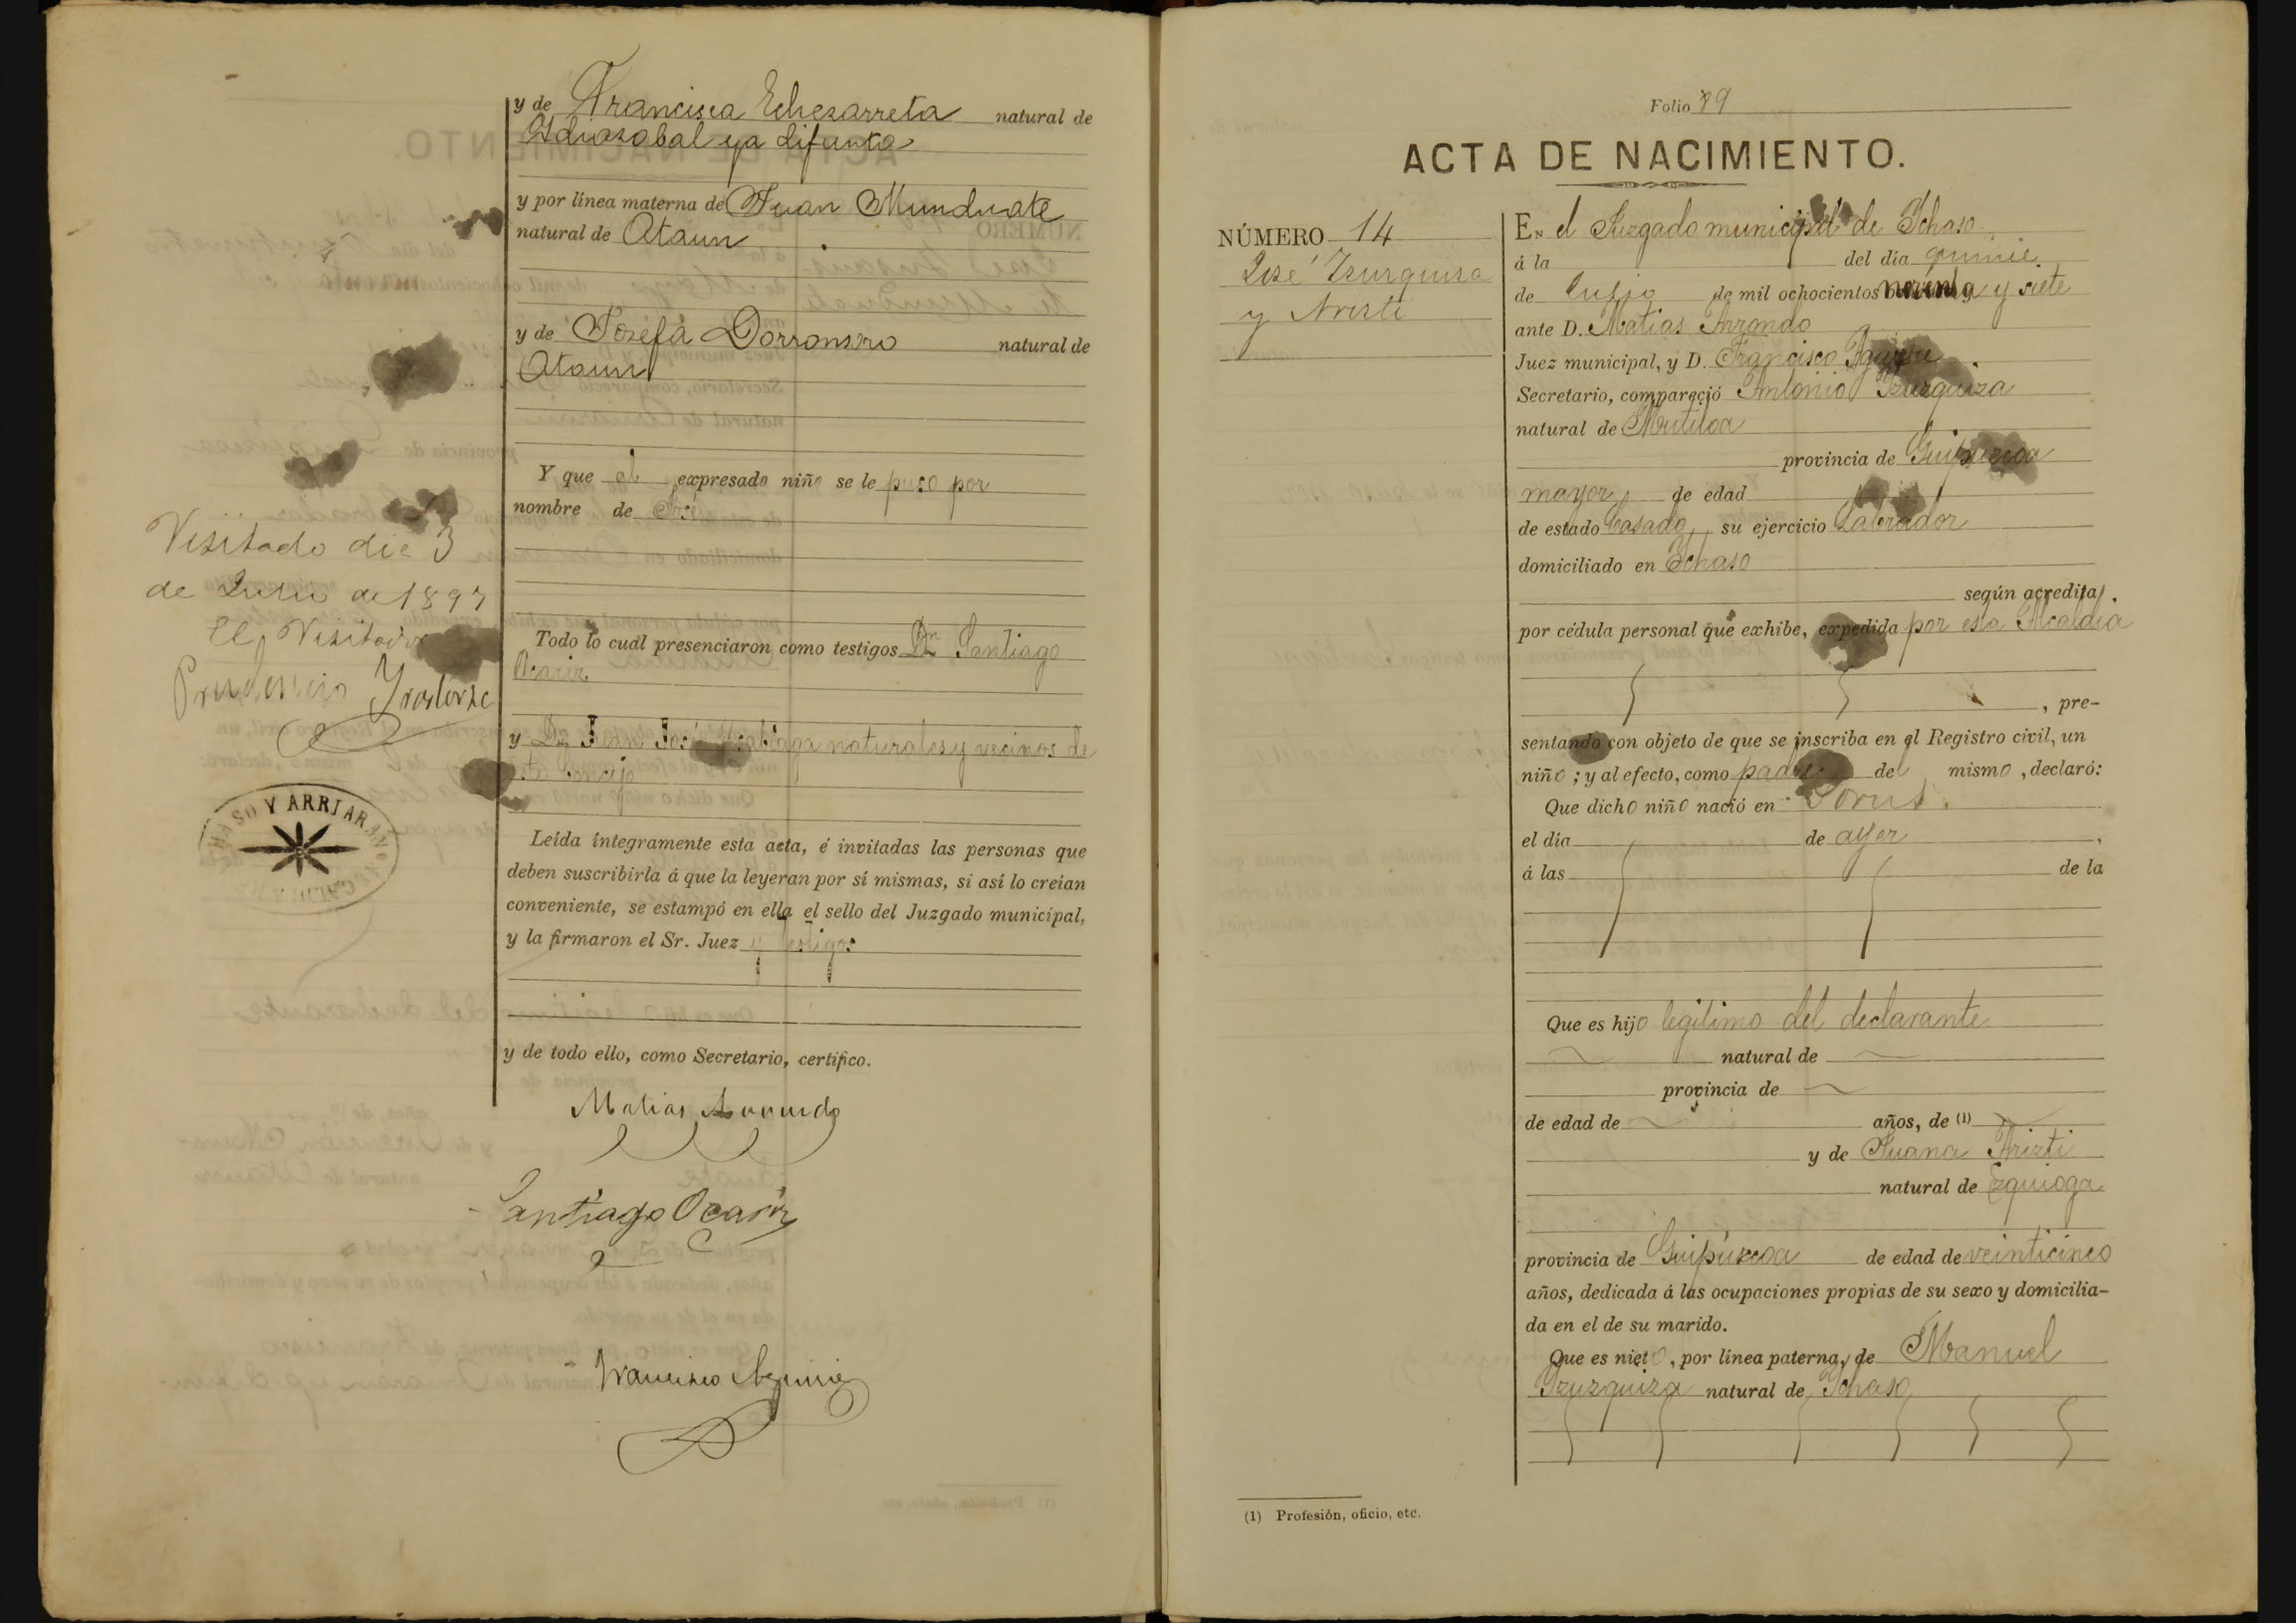 y de Francisca Echezarreta natural de
Idiazabal ya difunta
y por línea materna de Juan Munduate
natural de Ataun
y de Josefa Dorronsoro natural de
Ataun
Y que al expresado niño se le puso por
nombre de José
Todo lo cual presenciaron como testigos Dn Santiago
Ocariz
y Dn Juan José naturales y vecinos de
este Concejo
Leída íntegramente esta acta, é invitadas las personas que
deben suscribirla á que la leyeran por sí mismas, si así lo creían
conveniente, se estampó en ella el sello del Juzgado municipal,
y la firmaron el Sr. Juez y testigos
y de todo ello, como Secretario, certifico.
Matias Arrondo
Santiago Ocariz
Francisco Aguirre
Visitado dia 3
de Junio de 1897
El Visitador
Prudencio
Y ARRIARAN
Folio 89
ACTA DE NACIMIENTO.
NÚMERO 14
José Izurquiza
y Aristi
En el Juzgado municipal de Ichaso
á la del día quince
de Julio de mil ochocientos noventa y siete
ante D. Matias Arrondo
Juez municipal, y D. Francisco Aguirre
Secretario, compareció Antonio Izurquiza
natural de Mutiloa
provincia de Guipuzcoa
mayor de edad
de estado Casado, su ejercicio Labrador
domiciliado en Ichaso
según acredita
por cédula personal que exhibe, expedida por esta Alcaldia
, pre-
sentando con objeto de que se inscriba en el Registro civil, un
niño; y al efecto, como padre del mismo, declaró:
Que dicho niño nació en
el día de ayer,
á las de la
Que es hijo legitimo del declarante
natural de
provincia de
de edad de años, de (1)
y de Juana Arizti
natural de Ezquioga
provincia de Guipúzcoa de edad de veinticinco
años, dedicada á las ocupaciones propias de su sexo y domicilia-
da en el de su marido.
Que es nieto, por línea paterna, de Manuel
Izurquiza natural de Ichaso
(1) Profesión, oficio, etc.